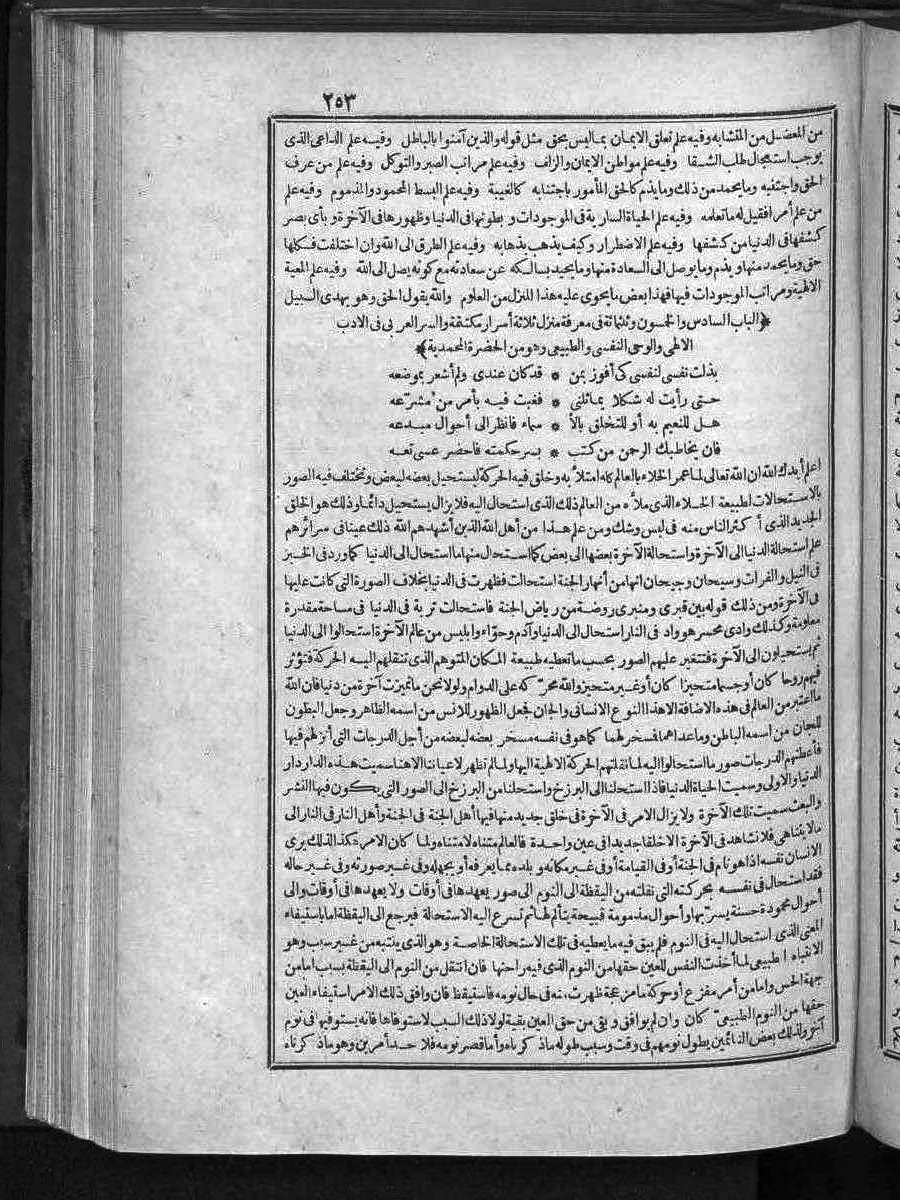 ٢٥٣
من المعضل من المتشابه وفيه علم تعلق الايمان بماليس بحق مثل قوله والذين آمنوا بالباطل وفيه علم الداعى الذى
يوجب استعجال طلب الشقا وفيه علم مواطن الايمان والزلف وفيه علم مراتب الصبر والتوكل وفيه علم من عرف
الحق واجتنبه وما يحمد من ذلك وما يذم كالحق المأمور باجتنابه كالغيبة وفيه علم البسط المحمود والمذموم وفيه علم
من علم أمرا فقيل له ما تعلمه وفيه علم الحياة السارية فى الموجودات وبطونها فى الدنيا وظهورها فى الآخرة وبأى بصر
كشفها فى الدنيا من كشفها وفيه علم الاضطرار وكيف يذهب بذهابه وفيه علم الطرق الى الله وان اختلفت فكلها
حق وما يحمد منها ويذم وما يوصل الى السعادة منها وما يحيد بسالكه عن سعادته مع كونه يصل الى الله وفيه علم المعية
الالهية ومراتب الموجودات فيها فهذا بعض ما يحوى عليه هذا المنزل من العلوم والله يقول الحق وهو يهدى السبيل
﴿الباب السادس والخمسون وثلثمائة فى معرفة منزل ثلاثة أسرار مكتمة والسر العربى فى الادب
الالهى والوحى النفسى والطبيعى وهو من الحضرة المحمدية﴾
بذلت نفسى لنفسى كى أفوز بمن * قد كان عندى ولم أشعر بموضعه
حتى رأيت له شكلا يماثلنى * فغبت فيه بأمر من مشرّعه
هل للنعيم به أو للتخلق بالأ * سماء فانظر الى أحوال مبدعه
فان يخاطبك الرحمن من كثب * بسر حكمته فاحضر عسى تعه
اعلم أيدك الله ان الله تعالى لما عمر الخلاء بالعالم كله امتلأ به وخلق فيه الحركة ليستحيل بعضه لبعض وتختلف فيه الصور
بالاستحالات لطبيعة الخلاء الذى ملأه من العالم ذلك الذى استحال اليه فلا يزال يستحيل دائما وذلك هو الخلق
الجديد الذى أكثر الناس منه فى لبس وشك ومن علم هذا من أهل الله الذين أشهدهم الله ذلك عينا فى سرائرهم
علم استحالة الدنيا الى الآخرة واستحالة الآخرة بعضها الى بعض كما استحال منها ما استحال الى الدنيا كما ورد فى الخبر
فى النيل والفرات وسيحان وجيحان انها من أنهار الجنة استحالت فظهرت فى الدنيا بخلاف الصورة التى كانت عليها
فى الآخرة ومن ذلك قوله بين قبرى ومنبرى روضة من رياض الجنة فاستحالت تربة فى الدنيا فى مساحة مقدرة
معلومة وكذلك وادى محسر هو واد فى النار استحال الى الدنيا وآدم وحوّاء وابليس من عالم الآخرة استحالوا الى الدنيا
ثم يستحيلون الى الآخرة فتتغير عليهم الصور بحسب ما تعطيه طبيعة المكان المتوهم الذى تنقلهم اليه الحركة فتؤثر
فيهم روحا كان أو جسما متحيزا كان أو غير متحيز والله محرّكه على الدوام ولولا نحن ما تميزت آخرة من دنيا فان الله
ما اعتبر من العالم فى هذه الاضافة الا هذا النوع الانسانى والجان فجعل الظهور للانس من اسمه الظاهر وجعل البطون
للجان من اسمه الباطن وما عداهما فسخر لهما كما هو فى نفسه مسخر بعضه لبعضه من أجل الدرجات التى أنزلهم فيها
فأعطتهم الدرجات صور ما استحالوا اليه لما نقلتهم الحركة الالهية اليها ولما لم تظهر لاعياننا الا هنا سميت هذه الدار دار
الدنيا والاولى وسميت الحياة الدنيا فاذا استحلنا الى البرزخ واستحلنا من البرزخ الى الصور التى يكون فيها النشر
والبعث سميت تلك الآخرة ولا يزال الامر فى الآخرة فى خلق جديد منها فيها أهل الجنة فى الجنة وأهل النار فى النار الى
ما لا يتناهى فلا نشاهد فى الآخرة الا خلقا جديدا فى عين واحدة فالعالم متناه لا متناه ولما كان الامر هكذا لذلك يرى
الانسان نفسه اذا هو نام فى الجنة أو فى القيامة أو فى غير مكانه وبلده مما يعرفه أو يجهله وفى غير صورته وفى غير حاله
فقد استحال فى نفسه بحركته التى نقلته من اليقظة الى النوم الى صور يعهدها فى أوقات ولا يعهدها فى أوقات والى
أحوال محمودة حسنة يسرّ بها وأحوال مذمومة قبيحة يتألم لها ثم تسرع اليه الاستحالة فيرجع الى اليقظة اما باستيفاء
المعنى الذى استحال اليه فى النوم فلم يبق فيه ما يعطيه فى تلك الاستحالة الخاصة وهو الذى ينتبه من غير سبب وهو
الانتباه الطبيعى لما أخذت النفس للعين حقها من النوم الذى فيه راحتها فان انتقل من النوم الى اليقظة بسبب اما من
جهة الحس واما من أمر مفزع أو حركة ما مزعجة ظهرت منه فى حال نومه فاستيقظ فان وافق ذلك الامر استيفاء العين
حقها من النوم الطبيعىّ كان وان لم يوافق وبقى من حق العين بقية لولا ذلك السبب لاستوفاها فانه يستوفيها فى نوم
آخر ولذلك بعض النائمين يطول نومهم فى وقت وسبب طوله ما ذكرناه وأما قصر نومه فلا حد أمرين وهو ما ذكرناه